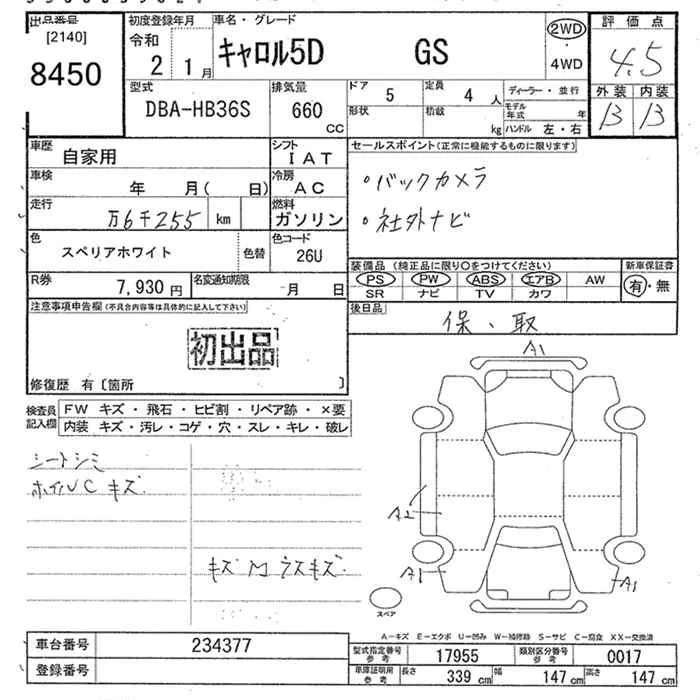 出品番号
[2140]
8450
初度登録年月
令和
2 1月
車名・グレード
キャロル5D GS
2WD
・
4WD
評価点
4.5
外装 内装
B B
型式
DBA-HB36S
排気量
660
cc
ドア
5
定員
4 人
形状
積載
kg
ディーラー・並行
モデル年式 年
ハンドル 左・右
車歴
自家用
シフト
I A T
車検
年 月( 日)
冷房
A C
走行
万6千255 km
燃料
ガソリン
色
スペリアホワイト
色替
色コード
26U
R券
7,930円
名変通知期限
月 日
セールスポイント(正常に機能するものに限ります)
・バックカメラ
・社外ナビ
装備品(純正品に限り○をつけてください)
PS PW ABS エアB AW
SR ナビ TV カワ
新車保証書
有・無
後日品
保、取
注意事項申告欄(不具合内容等は具体的に記入して下さい)
初出品
修復歴 有〔箇所 〕
検査員記入欄
FW キズ・飛石・ヒビ割・リペア跡・×要
内装 キズ・汚レ・コゲ・穴・スレ・キレ・破レ
シートシミ
ホイルC キズ
キズ M ウスキズ
A1
A2
A1
A1
スペア
A-キズ E-エクボ U-凹み W-補修跡 S-サビ C-腐食 XX-交換済
車台番号 234377
登録番号
型式指定番号 参考 17955
類別区分番号 参考 0017
車庫証明用 参考 長さ 339cm 幅 147cm 高さ 147cm